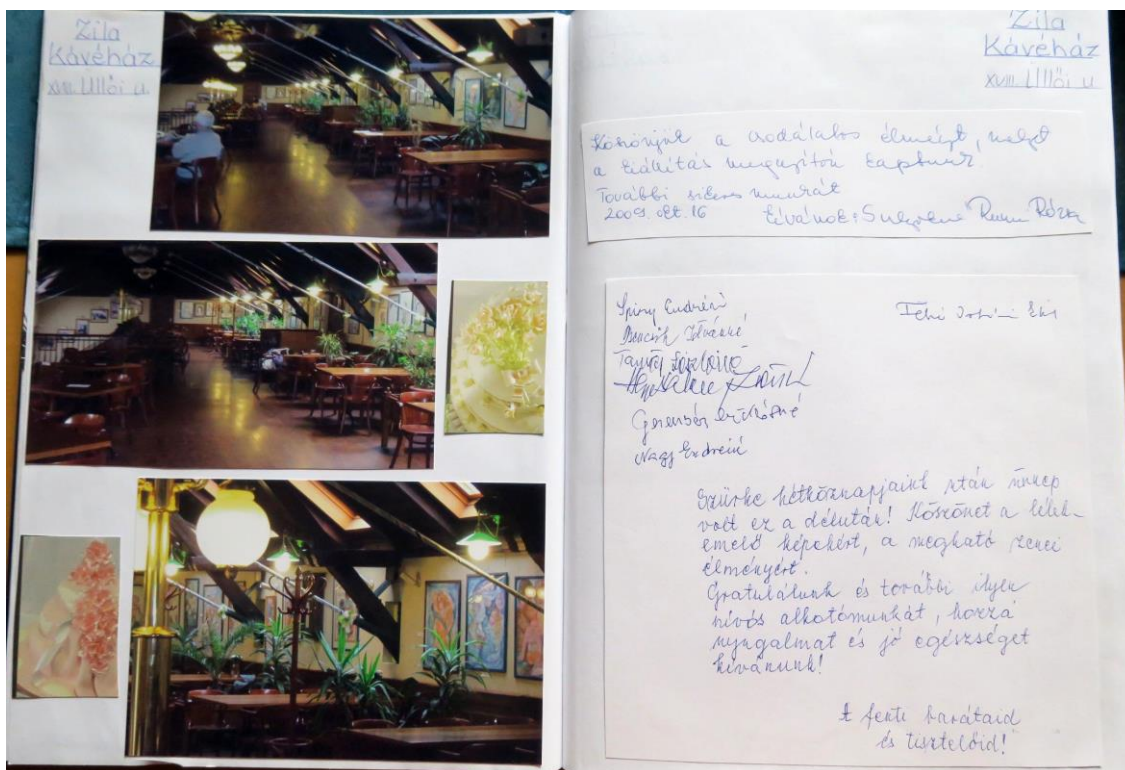 Zila
Kávéház
XVIII. Üllői u.
Zila
Kávéház
XVIII. Üllői u.
Köszönjük a csodálatos élményt, melyet
a kiállítás megnyitón kaptunk.
További sikeres munkát
2009. okt. 16 kívánok: Rózsa
Endréné
Istvánné
Nagy Endréné
Szürke hétköznapjaink után ünnep
volt ez a délután! Köszönet a lélek-
emelő képekért, a megható zenei
élményért.
Gratulálunk és további ilyen
nívós alkotómunkát, hozzá
nyugalmat és jó egészséget
kívánunk!
A fenti barátaid
és tisztelőid!